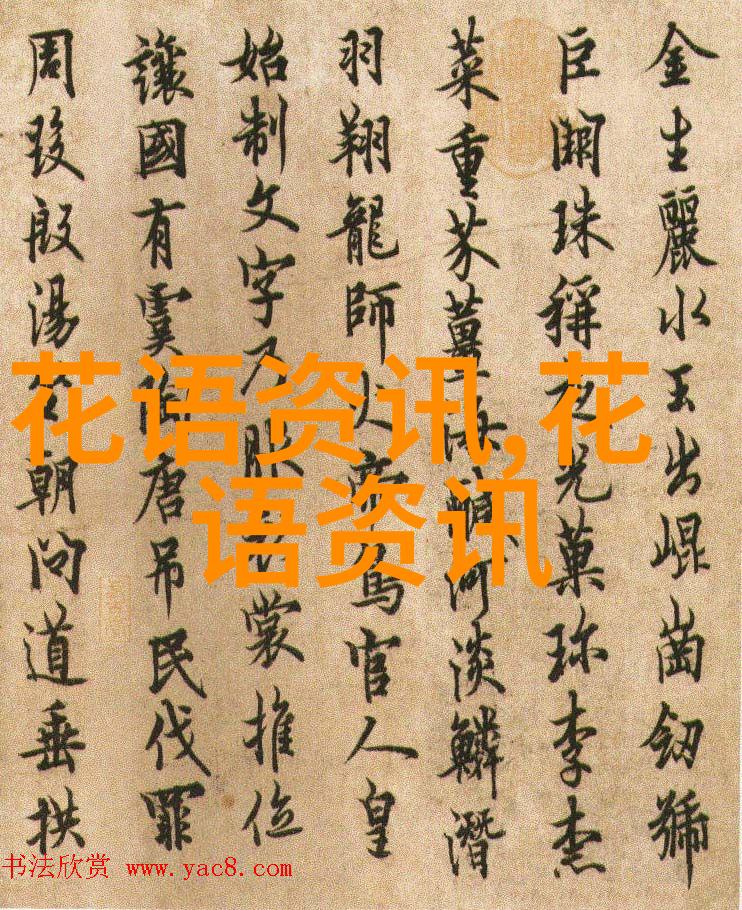 金生麗水玉出崐崗劒號
巨闕珠稱夜光菓珎李柰
菜重芥薑海醎河淡鱗潛
羽翔龍師火帝鳥官人皇
始制文字乃服衣裳推位
讓國有虞陶唐吊民伐罪
周發殷湯坐朝問道垂拱
花语资讯,花
语资讯
书法欣赏 www.yac8.com